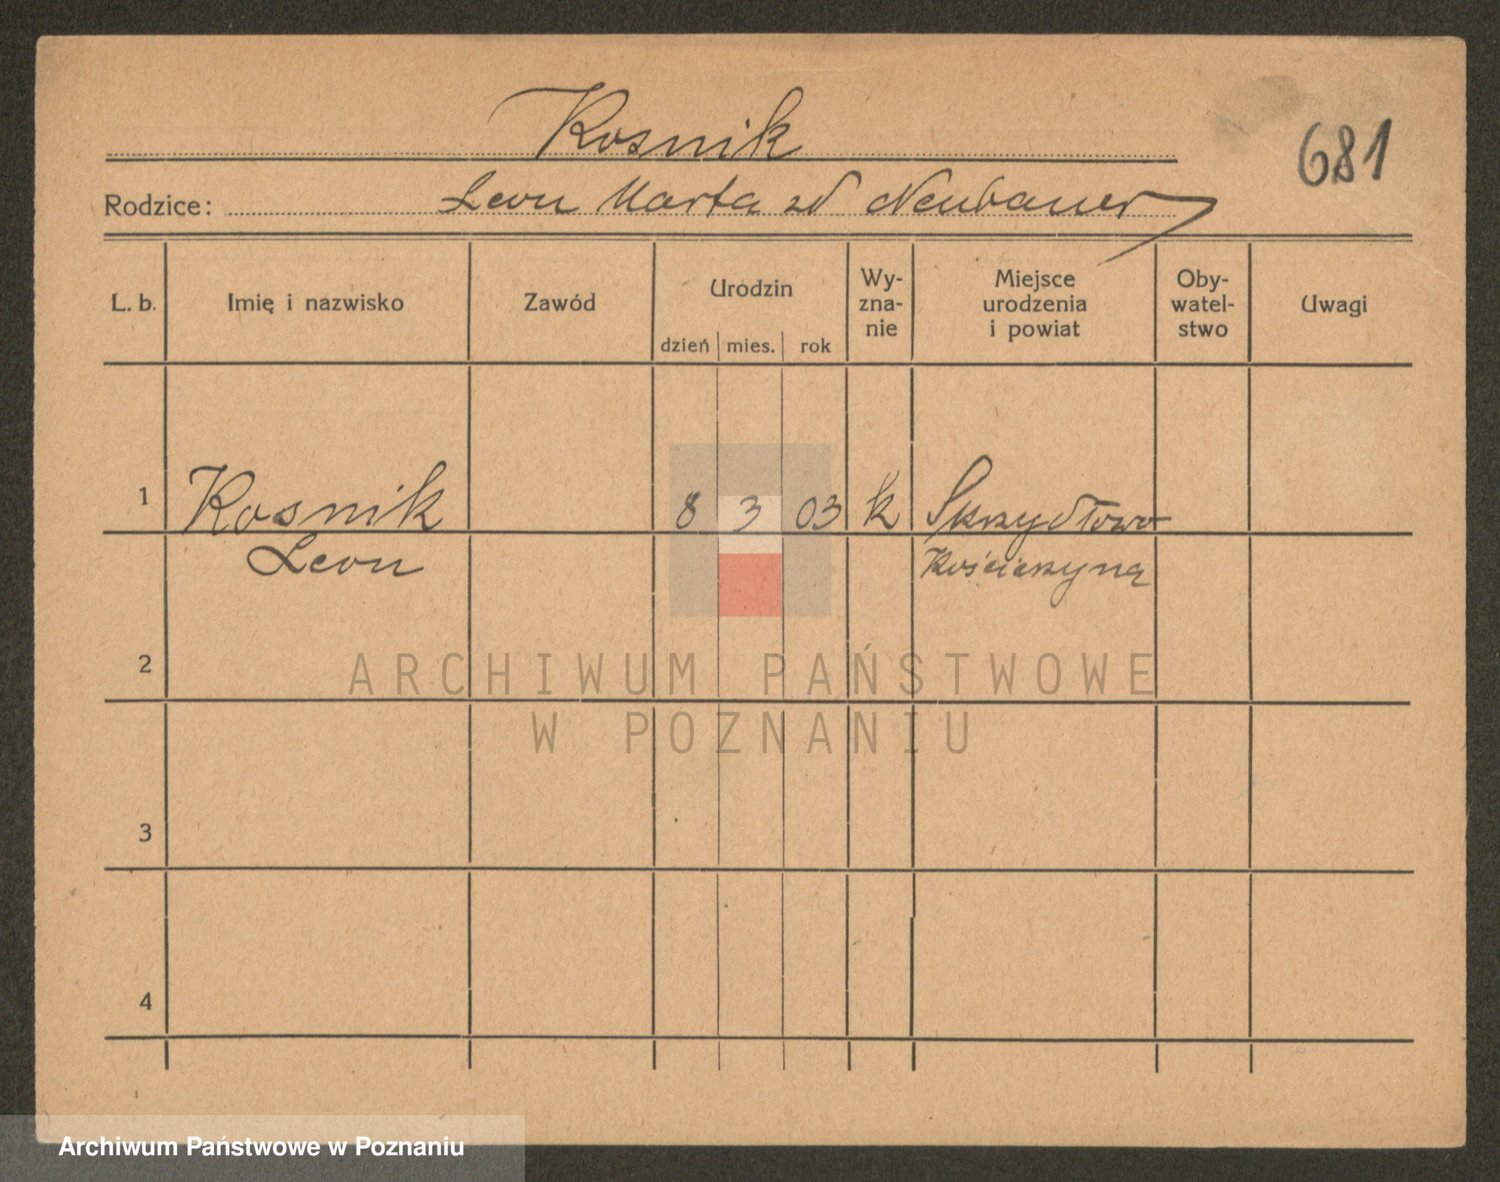 Kosnik
681
Rodzice: Leon Marta zd Neubauer
L. b. Imię i nazwisko Zawód Urodzin dzień mies. rok Wy-zna-nie Miejsce urodzenia i powiat Oby-watel-stwo Uwagi
1 Kosnik 8 3 03 k Skrzydłowo
Leon Kościerzyna
2
ARCHIWUM PAŃSTWOWE
W POZNANIU
3
4
Archiwum Państwowe w Poznaniu